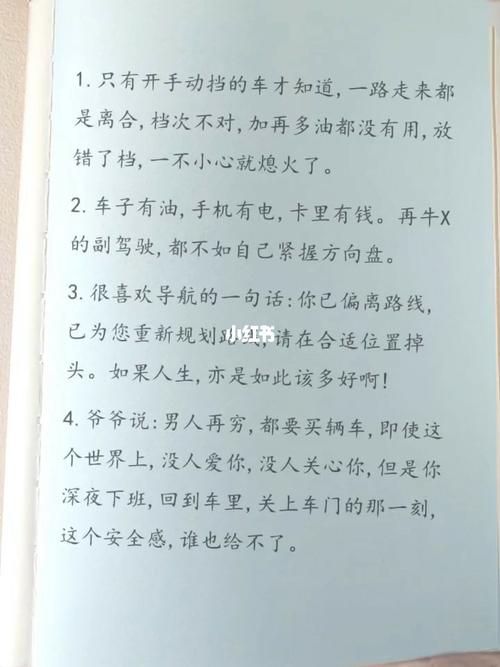 1.只有开手动挡的车才知道,一路走来都
是离合,档次不对,加再多油都没有用,放
错了档,一不小心就熄火了。
2.车子有油,手机有电,卡里有钱。再牛X
的副驾驶,都不如自己紧握方向盘。
3.很喜欢导航的一句话:你已偏离路线,
已为您重新规划线,请在合适位置掉
头。如果人生,亦是如此该多好啊!
4.爷爷说:男人再穷,都要买辆车,即使这
个世界上,没人爱你,没人关心你,但是你
深夜下班,回到车里,关上车门的那一刻,
这个安全感,谁也给不了。
小红书